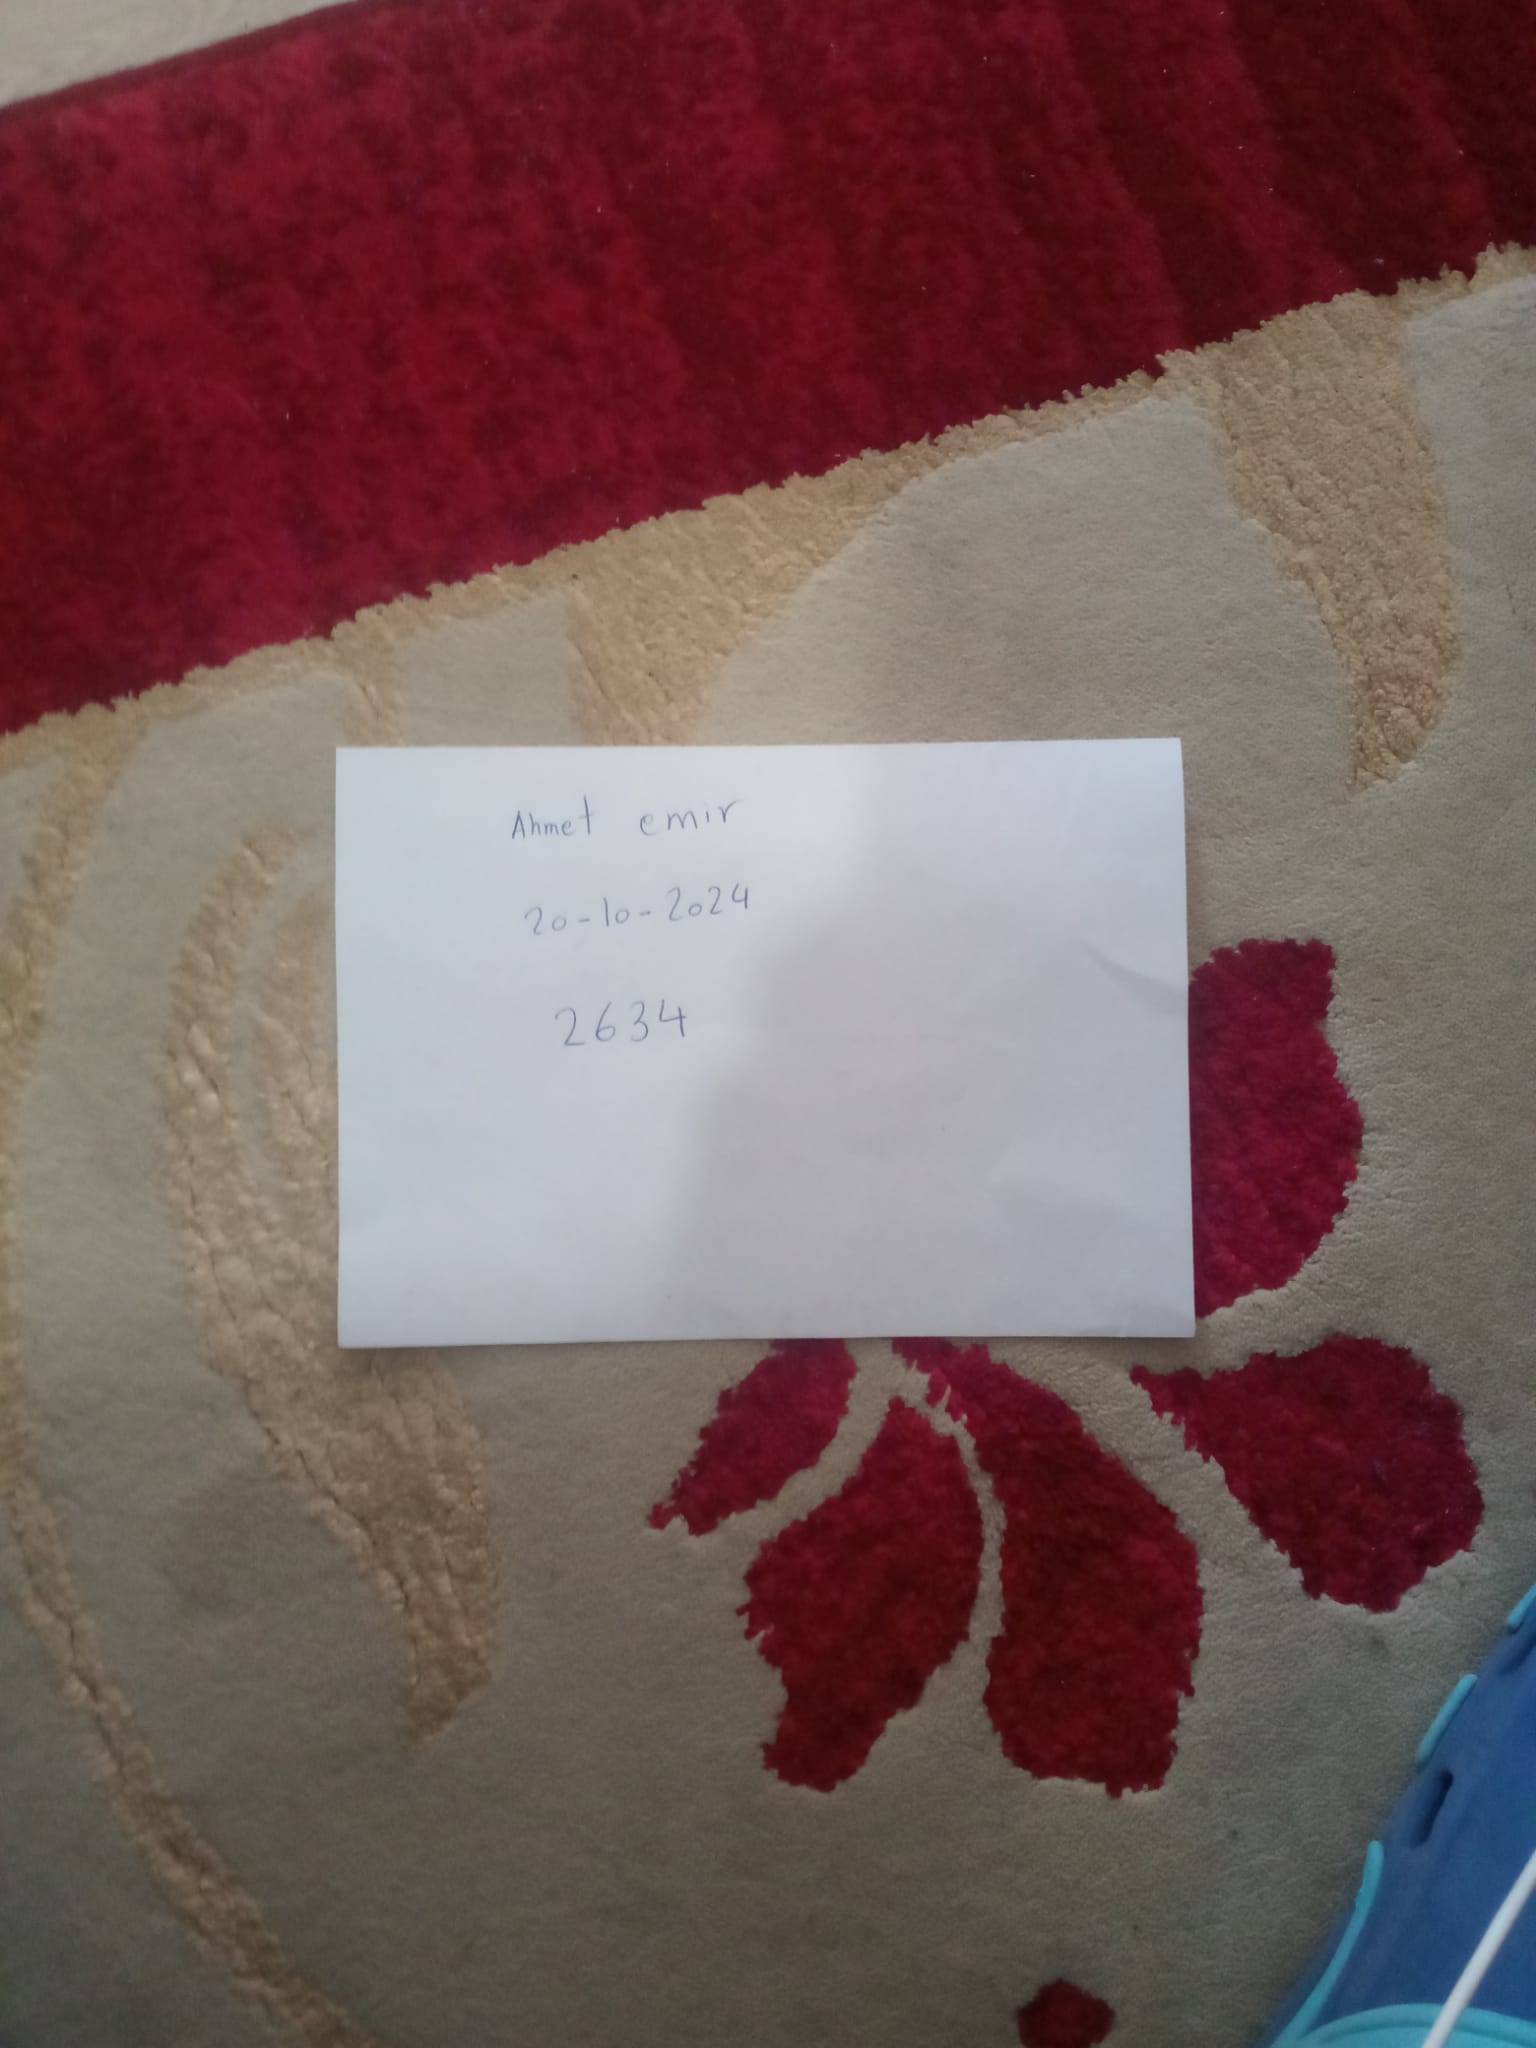 Ahmet emir
20-10-2024
2634